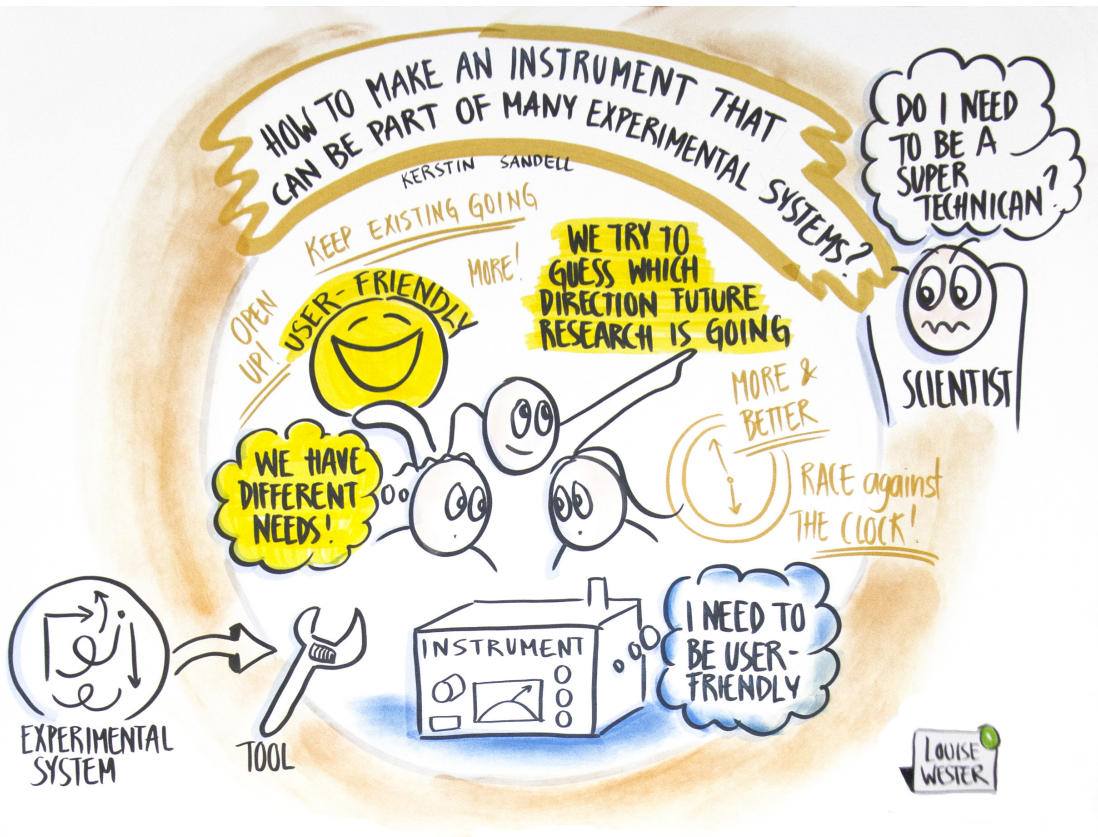 HOW TO MAKE AN INSTRUMENT THAT
CAN BE PART OF MANY EXPERIMENTAL SYSTEMS?
KERSTIN SANDELL
DO I NEED
TO BE A
SUPER
TECHNICAN?
SCIENTIST
KEEP EXISTING GOING
MORE!
OPEN
UP!
USER-FRIENDLY
WE TRY TO
GUESS WHICH
DIRECTION FUTURE
RESEARCH IS GOING
MORE &
BETTER
RACE against
THE CLOCK!
WE HAVE
DIFFERENT
NEEDS!
EXPERIMENTAL
SYSTEM
TOOL
INSTRUMENT
I NEED TO
BE USER-
FRIENDLY
LOUISE
WESTER